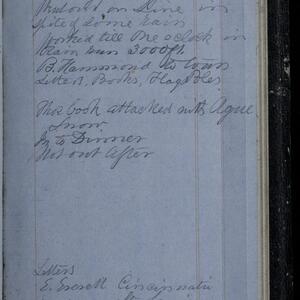 out on Line in
spite of some rain
worked till One o'clock in
rain run 3000 ft
B. Hammond to town
Letters, Books, Flag Poles
Thos Cook attacked with Ague
Snow
In to Dinner
Not out after
Letters
E. Everett Cincinnati